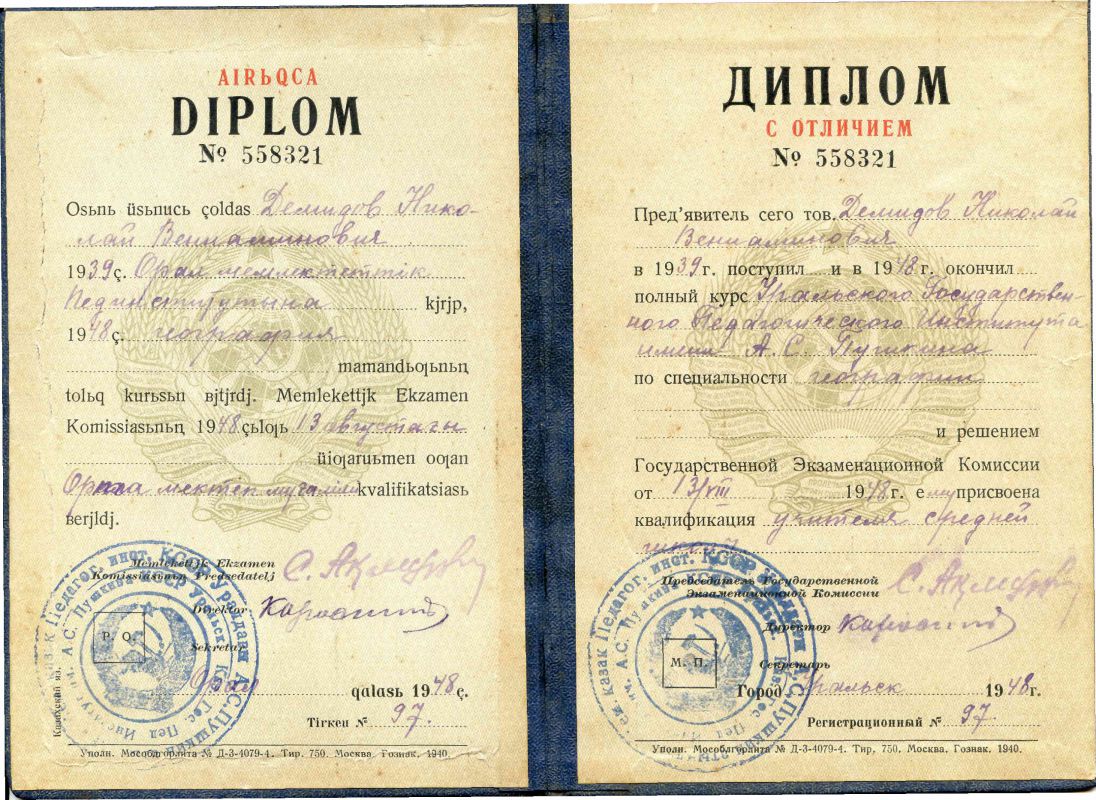 AIRЬQCA
DIPLOM
№ 558321
Osьnь üsьnucь çoldas Демидов Нико-
лай Вениаминович
1939ç. Орал мемлектеттік
Пединститутына kjrjp,
1948ç. география
mamandьƣьnьꞑ
tolьq kursьsьn вjtjrdj. Memlekettjk Ekzamen
Komissiasьnьꞑ 1948 çьlƣь 13 августағы
üiƣaruьmen ooƣan
Орта мектеп мұғалімі kvalifikatsiasь
вerjldj.
Memlekettjk Ekzamen
Komissiasьnьꞑ Predsedatelj
Direktor
Sekretar
P. O.
Орал qalasь 1948 ç.
Tirkeu № 97.
Казахский яз.
Уполн. Мособлгорлита № Д-3-4079-4. Тир. 750. Москва. Гознак. 1940.
ДИПЛОМ
С ОТЛИЧИЕМ
№ 558321
Пред'явитель сего тов. Демидов Николай
Вениаминович
в 1939 г. поступил и в 1948 г. окончил
полный курс Уральского Государствен-
ного Педагогического Института
имени А.С. Пушкина
по специальности география
и решением
Государственной Экзаменационной Комиссии
от 13/VIII 1948 г. ему присвоена
квалификация учителя средней
школы
Председатель Государственной
Экзаменационной Комиссии
Директор
Секретарь
М. П.
Город Уральск 1948 г.
Регистрационный № 97.
Уполн. Мособлгорлита № Д-3-4079-4. Тир, 750. Москва. Гознак. 1940.